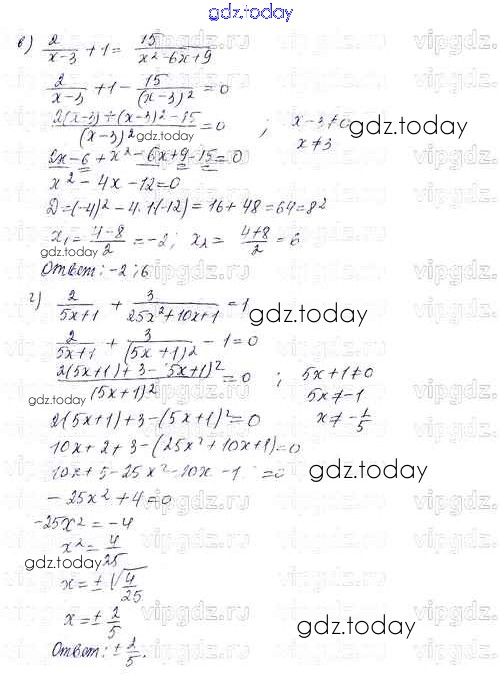 gdz.today
в) 2/(x-3) + 1 = 15/(x²-6x+9)
2/(x-3) + 1 - 15/(x-3)² = 0
(2(x-3)+(x-3)²-15)/(x-3)² = 0 ; x-3≠0
gdz.today
gdz.today
x≠3
2x-6+x²-6x+9-15=0
x²-4x-12=0
D=(-4)²-4·1(-12)=16+48=64=8²
x₁=(4-8)/2=-2; x₂=(4+8)/2=6
gdz.today
Ответ: -2; 6
г) 2/(5x+1) + 3/(25x²+10x+1) = 1
gdz.today
2/(5x+1) + 3/(5x+1)² - 1=0
(2(5x+1)+3-(5x+1)²)/(5x+1)² = 0 ; 5x+1≠0
gdz.today
5x≠-1
2(5x+1)+3-(5x+1)²=0 x≠-1/5
10x+2+3-(25x²+10x+1)=0
10x+5-25x²-10x-1=0
gdz.today
-25x²+4=0
-25x²=-4
x²=4/25
gdz.today
x=±√(4/25)
x=±2/5
gdz.today
Ответ: ±2/5.
vipgdz.ru